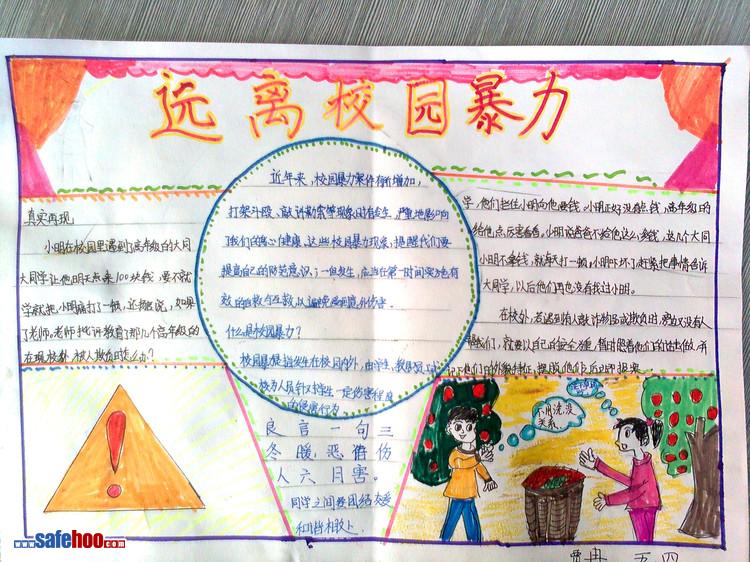 远离校园暴力
真实再现
小明在校园里遇到了高年级的大同
大同学让他明天点来100块钱,要不就
学就把小明痛打一顿,还
说,如果
了老师。老师批评教育了那几个高年级的
在现校外,被人欺负时怎么办?
近年来,校园暴力案件有所增加,
打架斗殴、敲诈勒索等现象时有发生,严重地影响
了我们的身心健康。这些校园暴力现象,提醒我们要
提高自己的防范意识,一但发生,应当在第一时间实施有
效的自救和互救,以避免
伤害。
什么是校园暴力?
校园暴力是指发生在校园内外,由学生、教师或
校外人员针对学生一定伤害程度
的侵害行为
良言一句三
冬暖,恶语伤
人六月寒。
同学之间要团结友爱
和谐相处。
学,他们拦住小明向他要钱。小明正好没有点钱,高年级的
给他点厉害看看。小明说爸爸不给他这么多钱,这几个大同
小明不拿钱,就每天打一顿。小明吓坏了赶紧把事情告诉
大同学,以后他们再也没有找过小明。
在校外,若遇到有人敲诈物品或欺负时,旁边又没有人
帮我们,就要以自己的安全为准,暂时照着他们的话去做,并
记下他们的外貌特征,摆脱他们后立即报案
不用洗,没
关系。
贾冉 五、四
www.safehoo.com